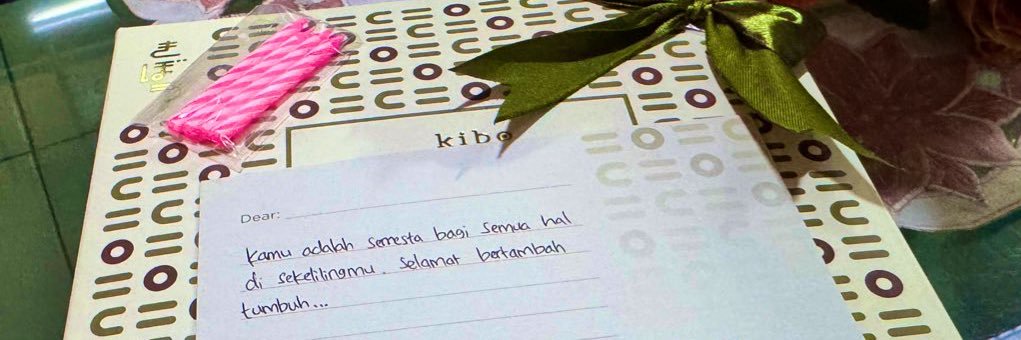 きぼ
kibo
Dear:
Kamu adalah semesta bagi semua hal
di sekelilingmu. Selamat bertambah
tumbuh...